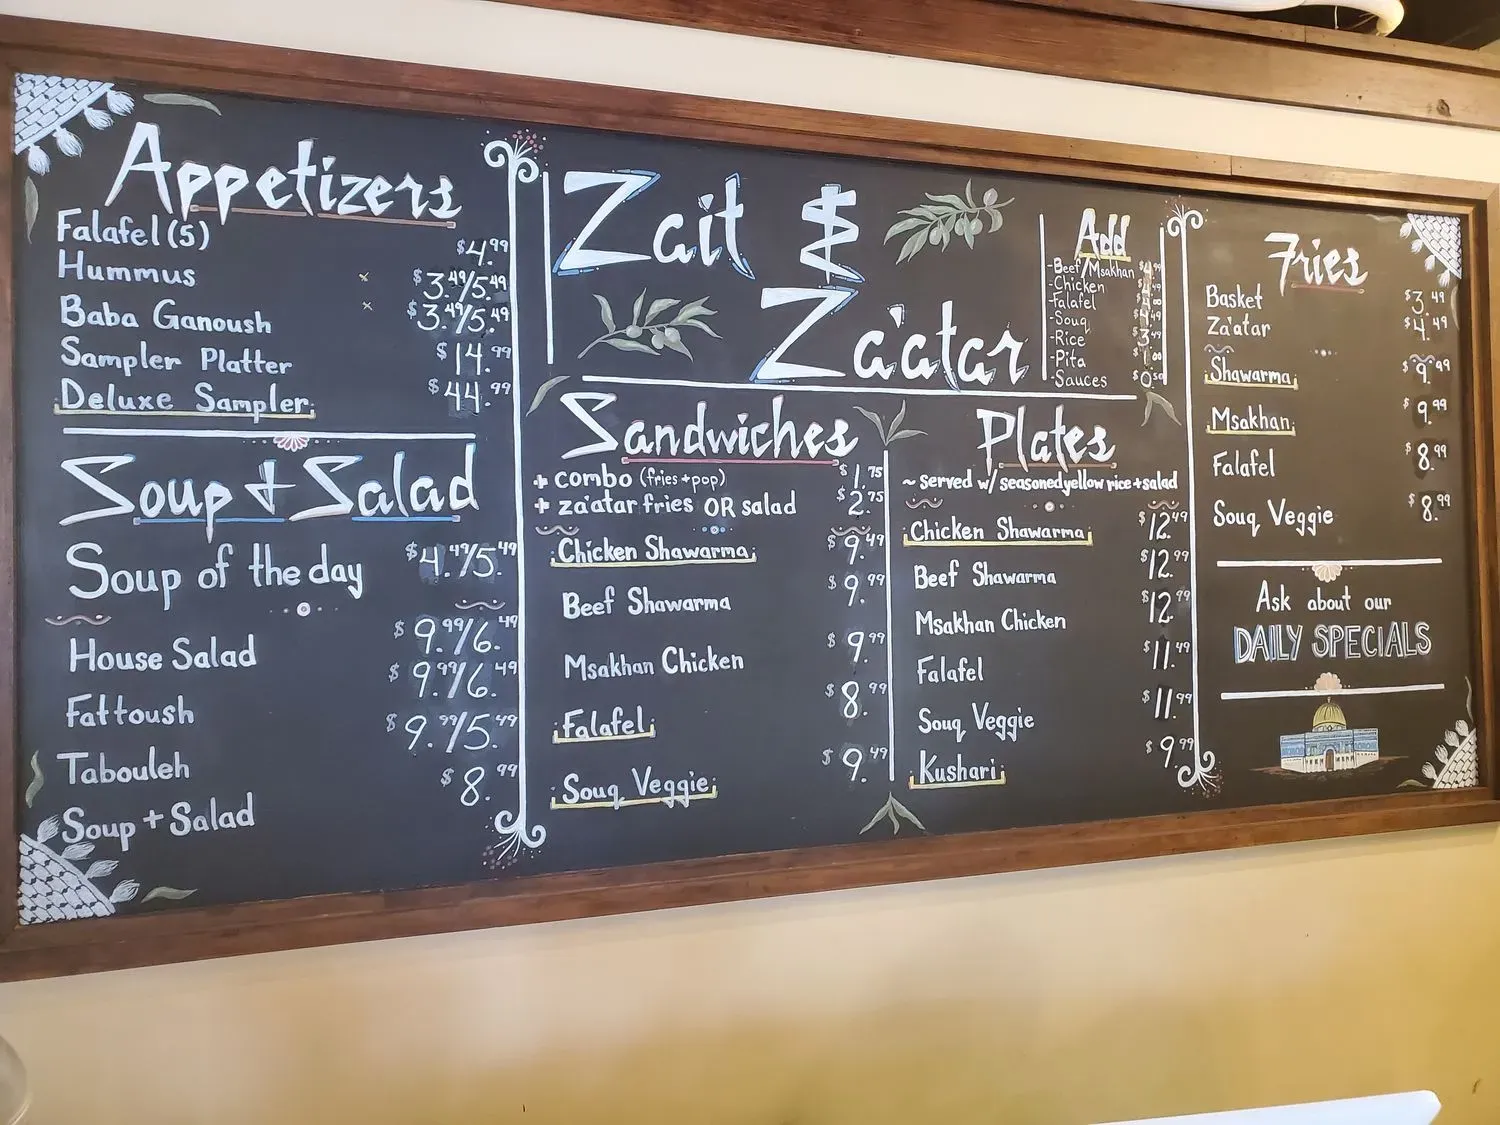 Appetizers
Falafel (5) $4.99
Hummus $3.49/5.49
Baba Ganoush $3.49/5.49
Sampler Platter $14.99
Deluxe Sampler $44.99
Soup + Salad
Soup of the day $4.49/5.49
House Salad $9.99/6.49
Fattoush $9.99/6.49
Tabouleh $9.99/5.49
Soup + Salad $8.99
Zait &
Za'atar
Add
-Beef/Msakhan
-Chicken
-Falafel
-Souq
-Rice
-Pita $1.00
-Sauces $0.50
Sandwiches
+ combo (fries + pop) $1.75
+ za'atar fries OR salad $2.75
Chicken Shawarma $9.49
Beef Shawarma $9.99
Msakhan Chicken $9.99
Falafel $8.99
Souq Veggie $9.49
Plates
~ served w/ seasoned yellow rice + salad
Chicken Shawarma $12.49
Beef Shawarma $12.99
Msakhan Chicken $12.99
Falafel $11.49
Souq Veggie $11.99
Kushari $9.99
Fries
Basket $3.49
Za'atar $4.49
Shawarma $9.99
Msakhan $9.99
Falafel $8.99
Souq Veggie $8.99
Ask about our
DAILY SPECIALS